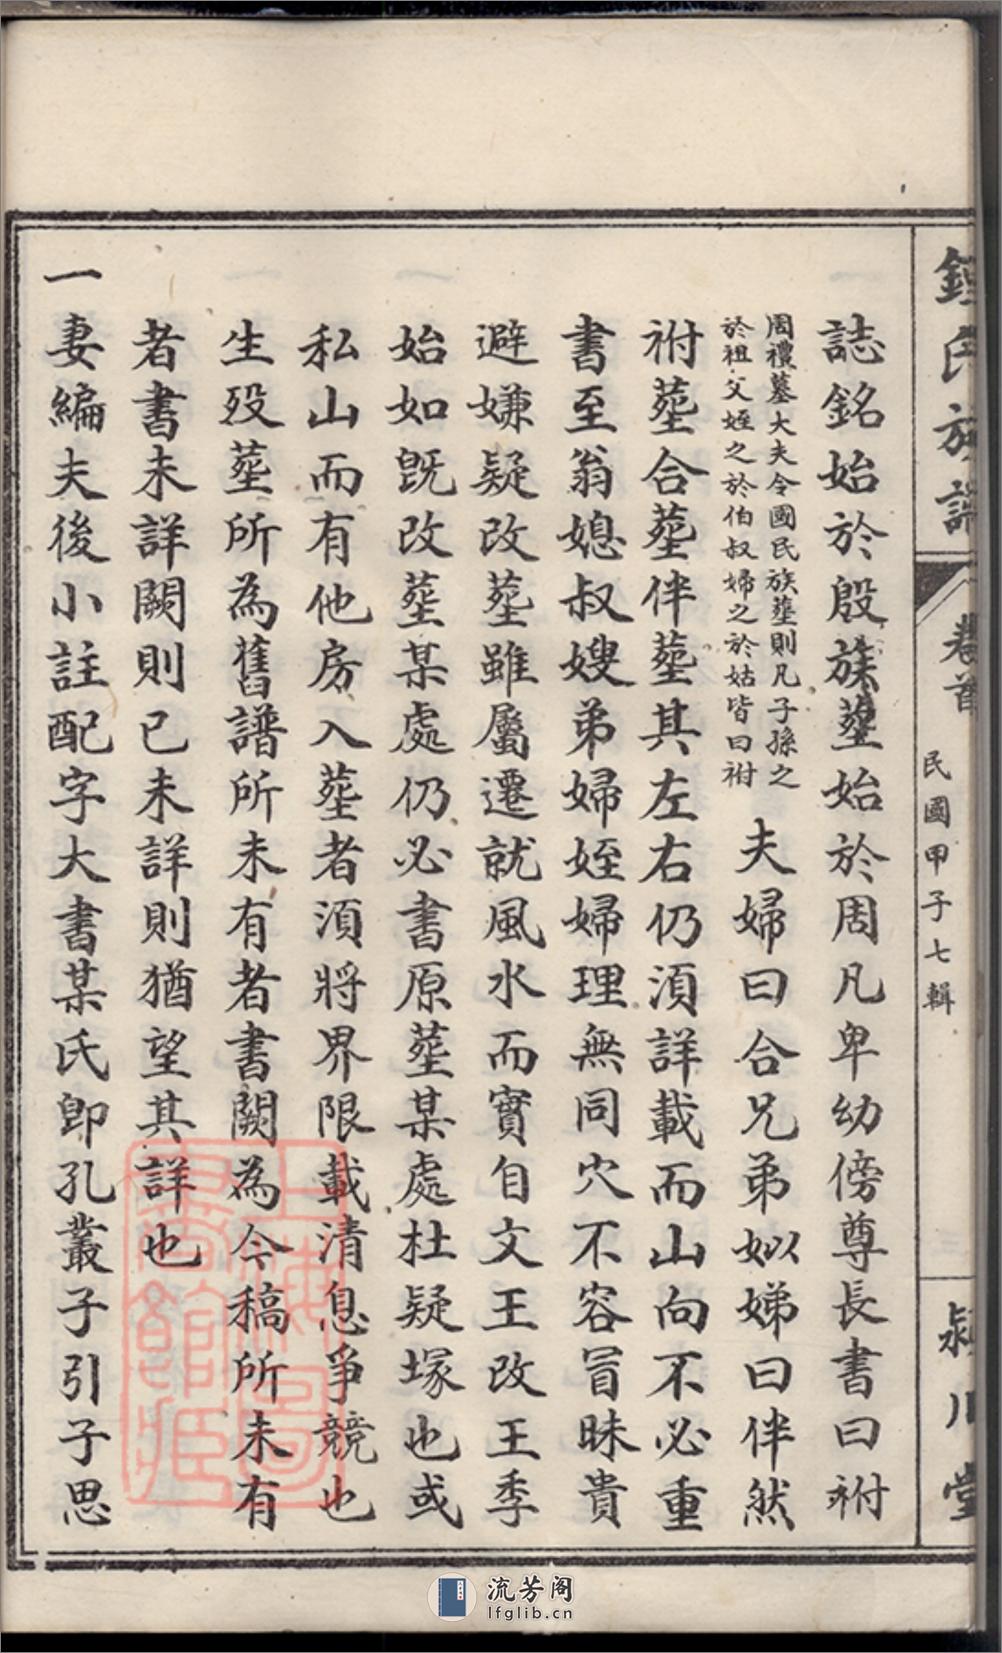 鍾氏族譜
卷首
民國甲子七輯
三
潁川堂
誌銘始於殷族塟始於周凡卑幼傍尊長書曰祔
周禮墓大夫令國民族塟則凡子孫之
於祖父姪之於伯叔婦之於姑皆曰祔
夫婦曰合兄弟姒娣曰伴然
祔塟合塟伴塟其左右仍湏詳載而山向不必重
書至翁媳叔嫂弟婦姪婦理無同穴不容冐昧貴
避嫌疑改塟雖屬遷就風水而實自文王改王季
始如既改塟某處仍必書原塟某處杜疑塚也或
私山而有他房入塟者湏將界限載清息爭競也
生殁塟所為舊譜所未有者書闕為今稿所未有
者書未詳闕則已未詳則猶望其詳也
一妻編夫後小註配字大書某氏即孔叢子引子思
上海圖書館藏
流芳阁
lfglib.cn